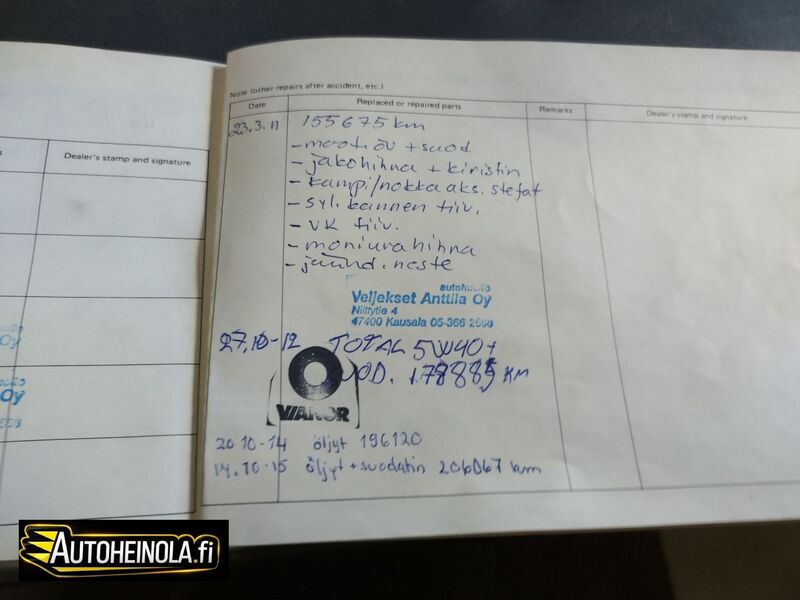 Dealer's stamp and signature
Oy
Note (other repairs after accident, etc.)
Date
Replaced or repaired parts
Remarks
Dealer's stamp and signature
23.3.11 155675 km
- moot.öv + suod
- jakohihna + kiristin
- kampi/nokka aks. stefat
- syl. kannen tiiv.
- VK tiiv.
- moniurahihna
- jäähd. neste
autohuolto
Veljekset Anttila Oy
Niittytie 4
47400 Kausala 05-366
27.10-12 TOTAL 5W40 +
178885 km
VIANOR
20 10-14 öljyt 196120
14.10-15 öljyt + suodatin 206067 km
AUTOHEINOLA.fi